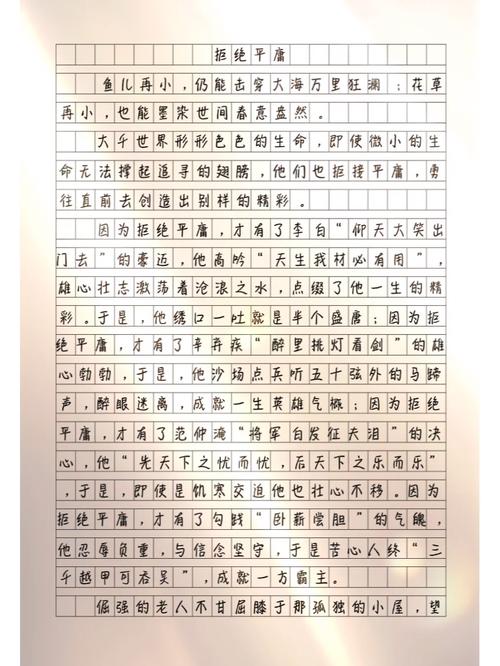 拒绝平庸
鱼儿再小，仍能击穿大海万里狂澜；花草
再小，也能墨染世间春意盎然。
大千世界形形色色的生命，即使微小的生
命无法撑起追寻的翅膀，他们也拒接平庸，勇
往直前去创造出别样的精彩。
因为拒绝平庸，才有了李白“仰天大笑出
门去”的豪迈，他高吟“天生我材必有用”，
雄心壮志激荡着沧浪之水，点缀了他一生的精
彩。于是，他绣口一吐就是半个盛唐；因为拒
绝平庸，才有了辛弃疾“醉里挑灯看剑”的雄
心勃勃，于是，他沙场点兵听五十弦外的马蹄
声，醉眼迷离，成就一生英雄气概；因为拒绝
平庸，才有了范仲淹“将军白发征夫泪”的决
心，他“先天下之忧而忧，后天下之乐而乐”
，于是，即使是饥寒交迫他也壮心不移。因为
拒绝平庸，才有了勾践“卧薪尝胆”的气魄，
他忍辱负重，与信念坚守，于是苦心人终“三
千越甲可吞吴”，成就一方霸主。
倔强的老人不甘屈膝于那孤独的小屋，望